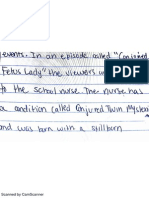 events. In an episode called "Conjoined
Fetus Lady" the viewers
to the school nurse. The nurse has
a condition called Conjured Twin
and was born with a stillborn
Scanned by CamScanner